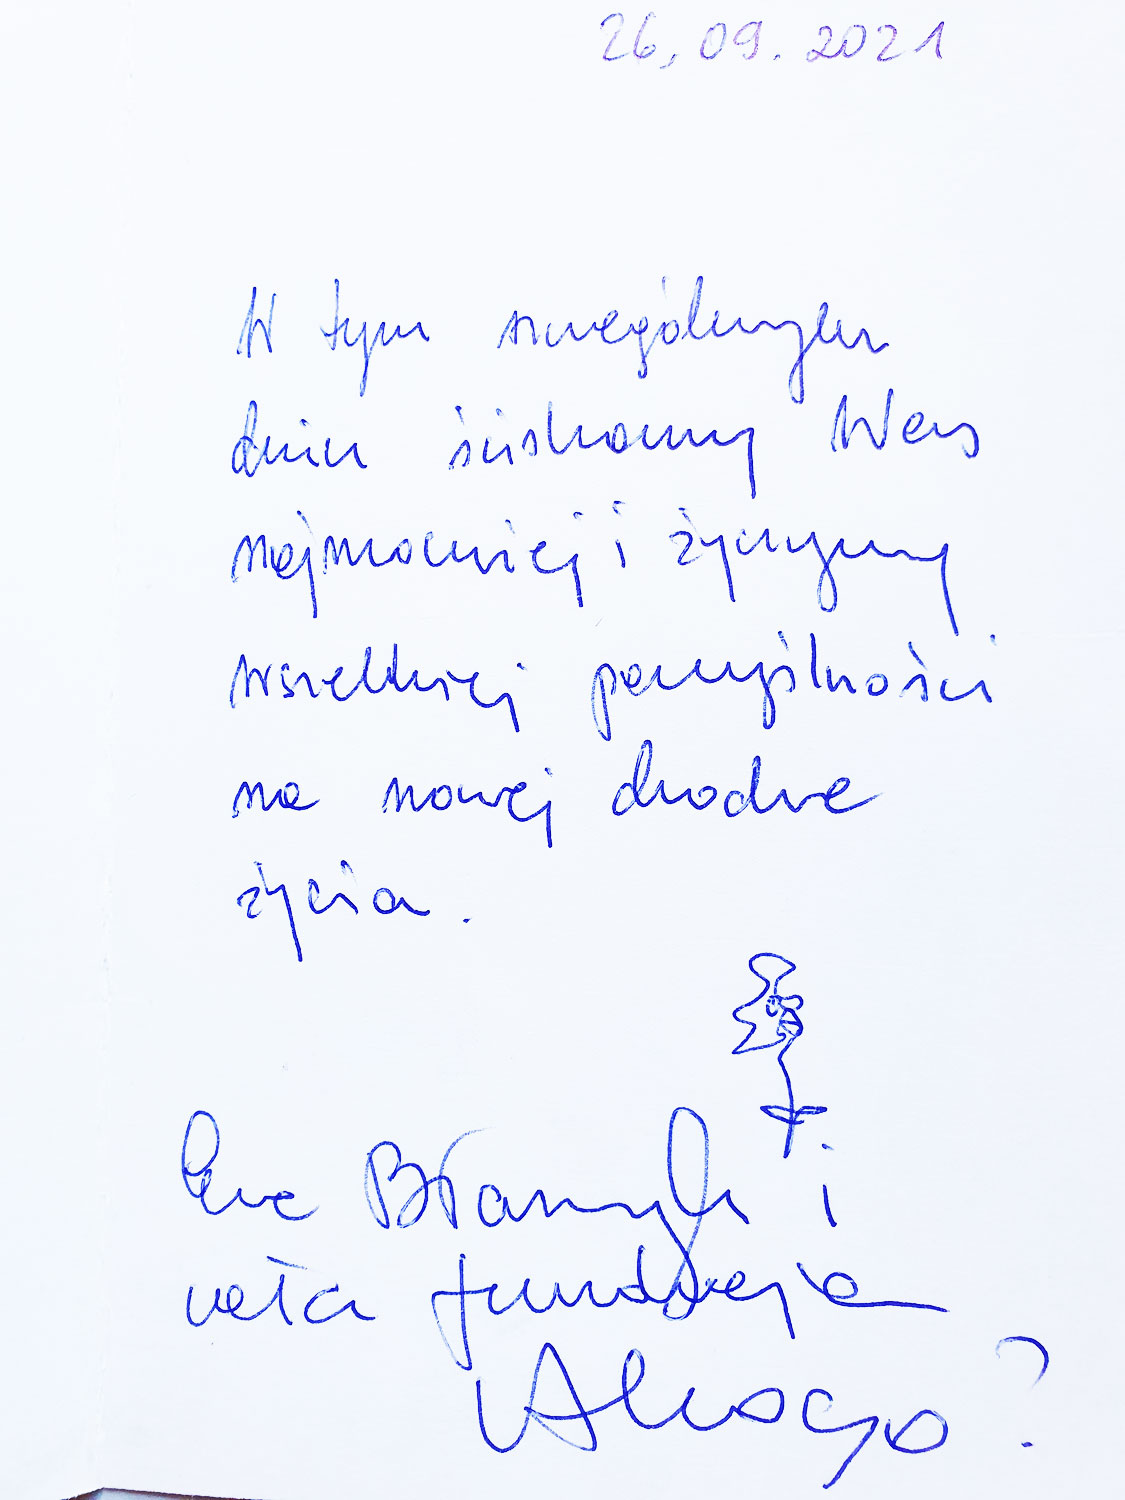 26.09.2021
W tym szczególnym
dniu ściskamy Was
najmocniej i życzymy
wszelkiej pomyślności
na nowej drodze
życia.
Ewa Błaszczyk i
cała fundacja
Akogo?